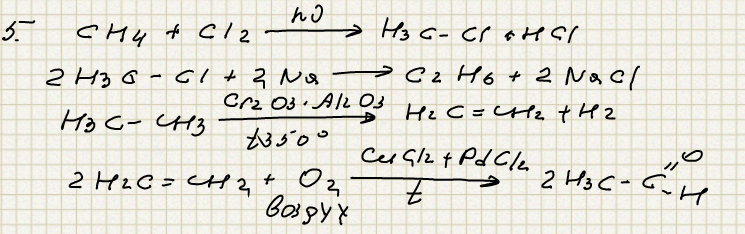 5. CH4 + Cl2 hυ → H3C - Cl + HCl
2 H3C - Cl + 2 Na → C2H6 + 2 NaCl
H3C - CH3 Cr2O3 · Al2O3 t350° → H2C = CH2 + H2
2 H2C = CH2 + O2 CuCl2 + PdCl2 t → 2 H3C - C =O -H
воздух